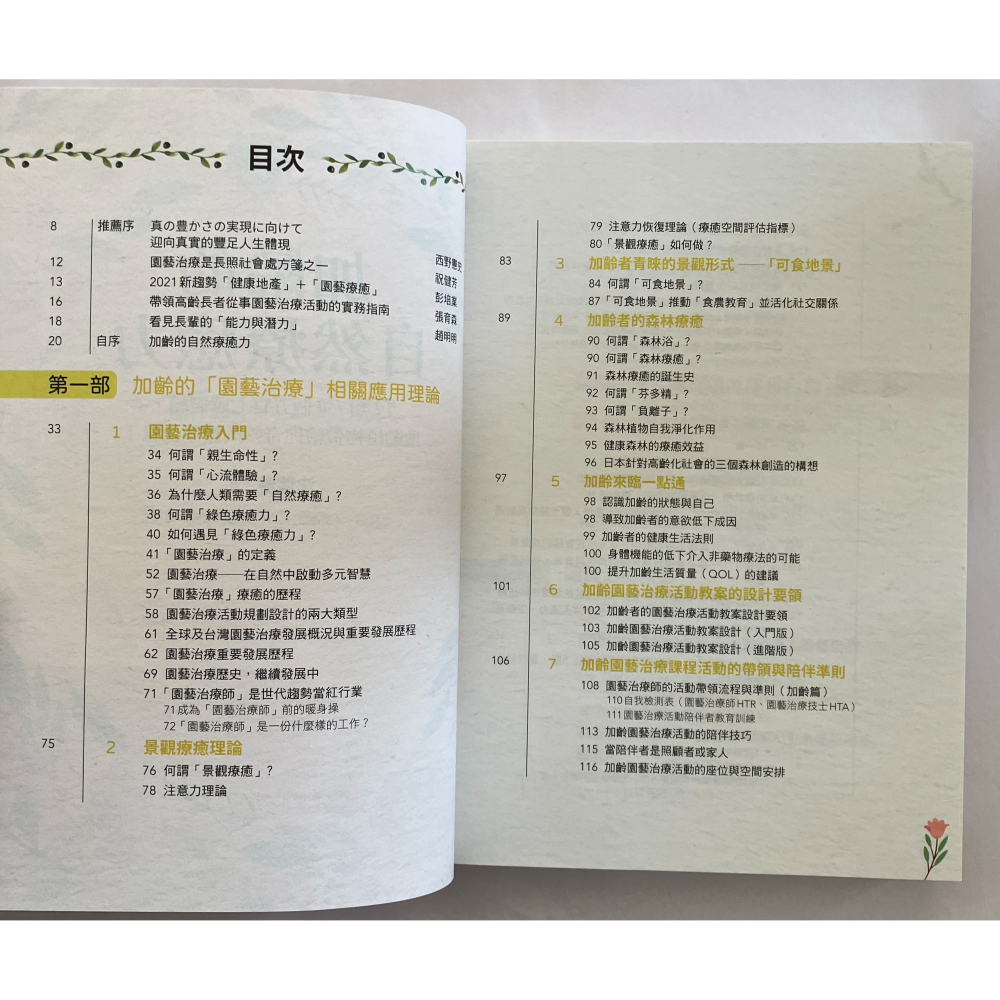 目次
8 推薦序 真の豊かさの実現に向けて
迎向真實的豐足人生體現 西野憲史
12 園藝治療是長照社會處方箋之一 祝健芳
13 2021新趨勢「健康地產」＋「園藝療癒」 彭培業
16 帶領高齡長者從事園藝治療活動的實務指南 張育森
18 看見長輩的「能力與潛力」 趙明明
20 自序 加齡的自然療癒力
第一部 加齡的「園藝治療」相關應用理論
33 1 園藝治療入門
34 何謂「親生命性」？
35 何謂「心流體驗」？
36 為什麼人類需要「自然療癒」？
38 何謂「綠色療癒力」？
40 如何遇見「綠色療癒力」？
41「園藝治療」的定義
52 園藝治療──在自然中啟動多元智慧
57「園藝治療」療癒的歷程
58 園藝治療活動規劃設計的兩大類型
61 全球及台灣園藝治療發展概況與重要發展歷程
62 園藝治療重要發展歷程
69 園藝治療歷史，繼續發展中
71「園藝治療師」是世代趨勢當紅行業
71成為「園藝治療師」前的暖身操
72「園藝治療師」是一份什麼樣的工作？
75 2 景觀療癒理論
76 何謂「景觀療癒」？
78 注意力理論
79 注意力恢復理論（療癒空間評估指標）
80「景觀療癒」如何做？
83 3 加齡者青睞的景觀形式──「可食地景」
84 何謂「可食地景」？
87「可食地景」推動「食農教育」並活化社交關係
89 4 加齡者的森林療癒
90 何謂「森林浴」？
90 何謂「森林療癒」？
91 森林療癒的誕生史
92 何謂「芬多精」？
93 何謂「負離子」？
94 森林植物自我淨化作用
95 健康森林的療癒效益
96 日本針對高齡化社會的三個森林創造的構想
97 5 加齡來臨一點通
98 認識加齡的狀態與自己
98 導致加齡者的意欲低下成因
99 加齡者的健康生活法則
100 身體機能的低下介入非藥物療法的可能
100 提升加齡生活質量（QOL）的建議
101 6 加齡園藝治療活動教案的設計要領
102 加齡者的園藝治療活動教案設計要領
103 加齡園藝治療活動教案設計（入門版）
105 加齡園藝治療活動教案設計（進階版）
106 7 加齡園藝治療課程活動的帶領與陪伴準則
108 園藝治療師的活動帶領流程與準則（加齡篇）
110自我檢測表（園藝治療師HTR、園藝治療技士HTA）
111園藝治療活動陪伴者教育訓練
113 加齡園藝治療活動的陪伴技巧
115 當陪伴者是照顧者或家人
116 加齡園藝治療活動的座位與空間安排